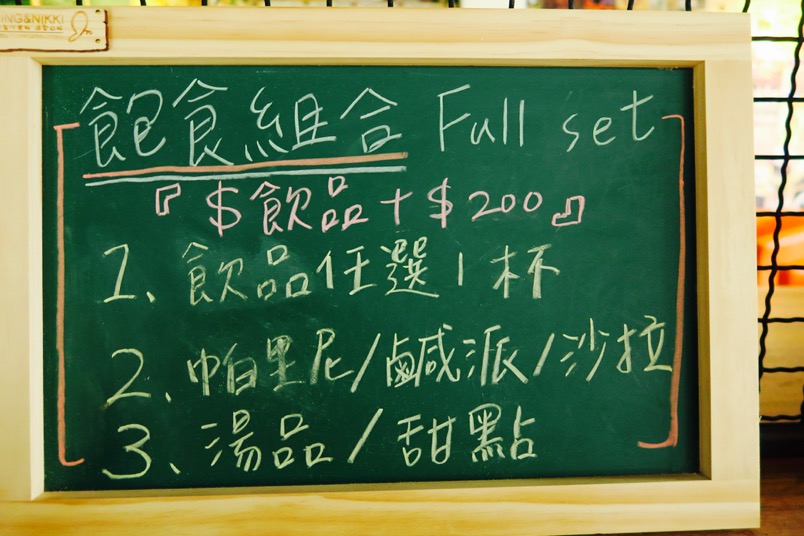 ING&NIKKI
飽食組合 Full set
『$飲品+$200』
1、飲品任選1杯
2、帕里尼/鹹派/沙拉
3、湯品/甜點